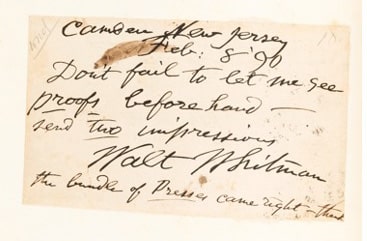 Camden New Jersey
Feb: 8 '90
Don't fail to let me see
proofs before hand —
send two impressions
Walt Whitman
the bundle of Presses came right – thanks